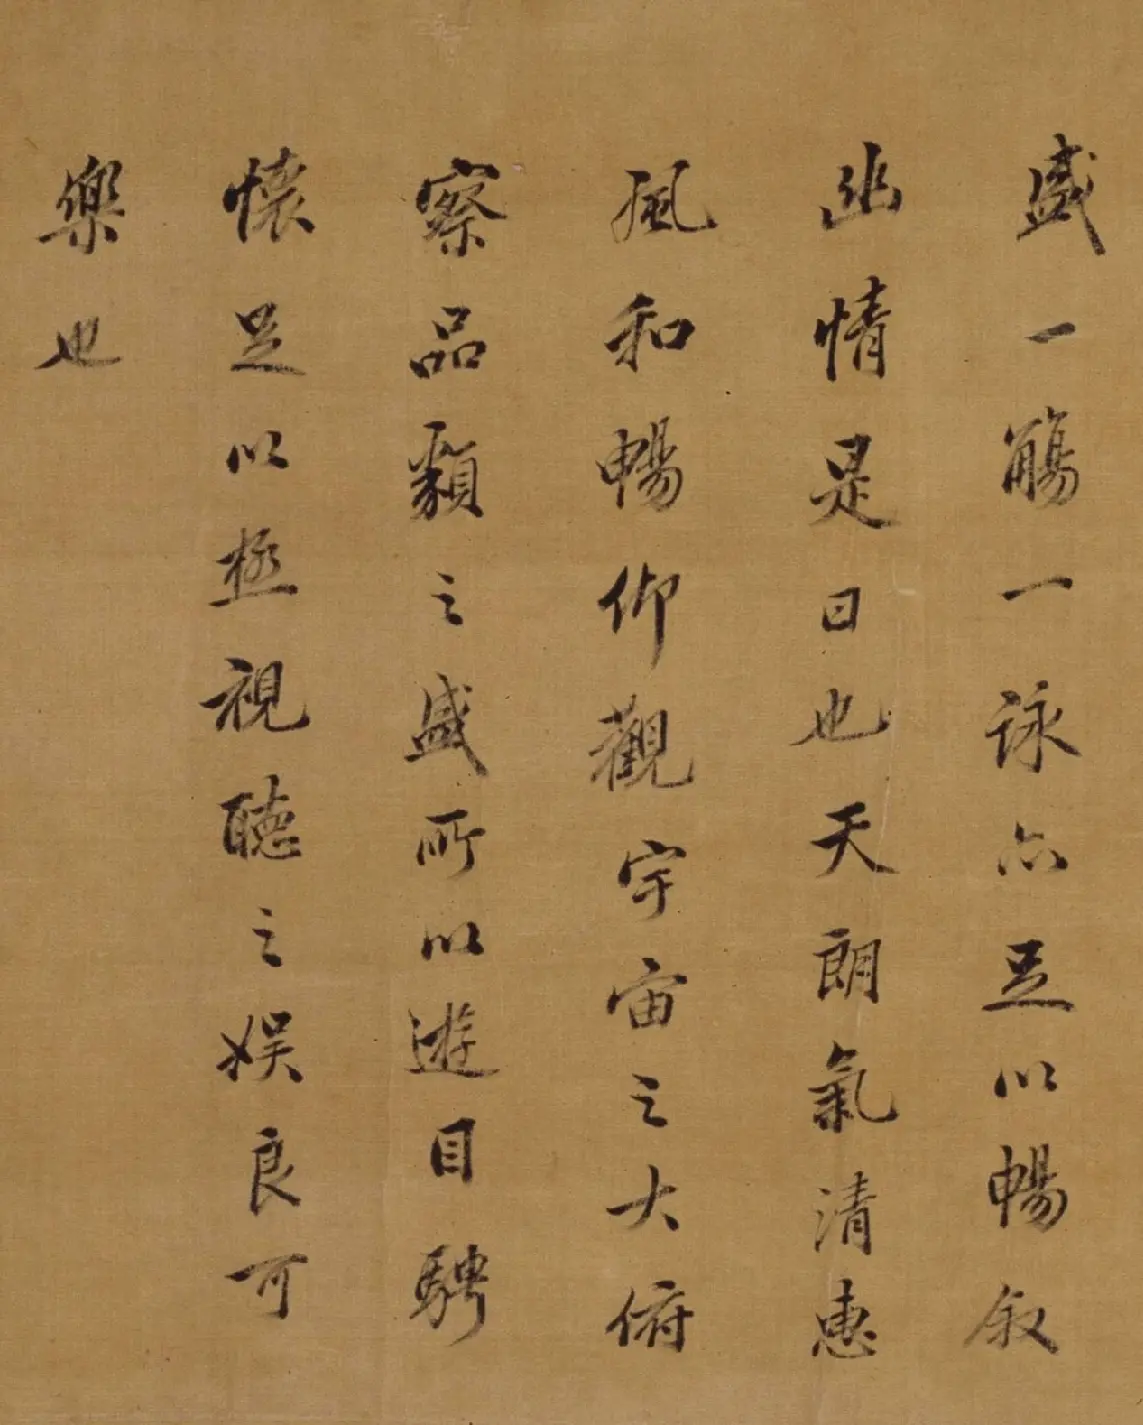 盛一觴一詠亦足以暢叙
幽情是日也天朗氣清惠
風和暢仰觀宇宙之大俯
察品類之盛所以遊目騁
懷足以極視聽之娛良可
樂也